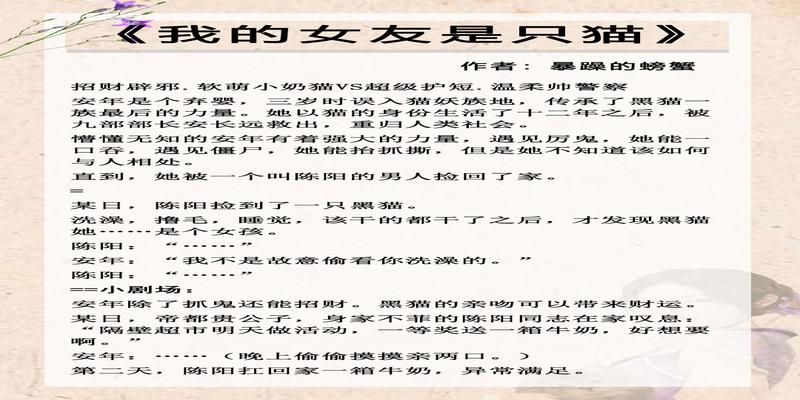 《我的女友是只猫》
作者：暴躁的螃蟹
招财辟邪.软萌小奶猫VS超级护短.温柔帅警察
安年是个弃婴，三岁时误入猫妖族地，传承了黑猫一
族最后的力量。她以猫的身份生活了十二年之后，被
九部部长安长远救出，重归人类社会。
懵懂无知的安年有着强大的力量，遇见厉鬼，她能一
口吞，遇见僵尸，她能抬抓撕，但是她不知道该如何
与人相处。
直到，她被一个叫陈阳的男人捡回了家。
=
某日，陈阳捡到了一只黑猫。
洗澡，撸毛，睡觉，该干的都干了之后，才发现黑猫
她……是个女孩。
陈阳：“……”
安年：“我不是故意偷看你洗澡的。”
陈阳：“……”
==小剧场：
安年除了抓鬼还能招财。黑猫的亲吻可以带来财运。
某日，帝都贵公子，身家不菲的陈阳同志在家叹息：
“隔壁超市明天做活动，一等奖送一箱牛奶，好想要
啊。”
安年：……（晚上偷偷摸摸亲两口。）
第二天，陈阳扛回家一箱牛奶，异常满足。